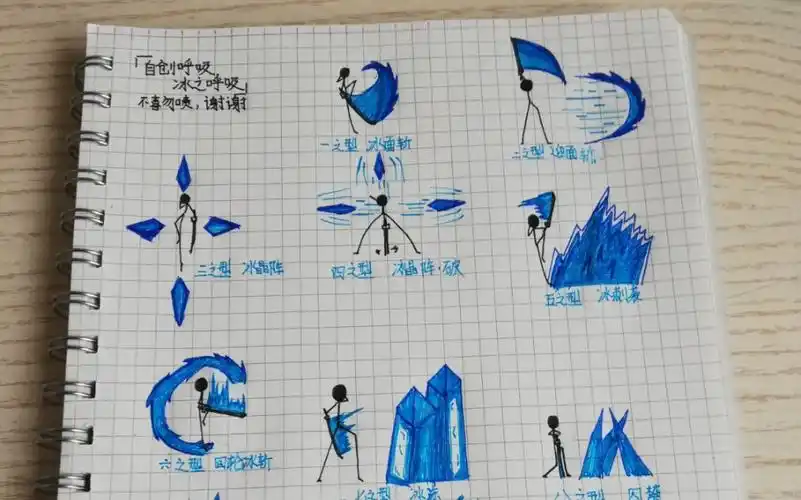 「自创呼吸
冰之呼吸」
不喜勿喷,谢谢
一之型 冰面斩
二之型 面斩
三之型 冰晶阵
四之型 冰晶阵·破
五之型 冰刺
六之型 回轮冰斩
七之型 冰
八之型 冈